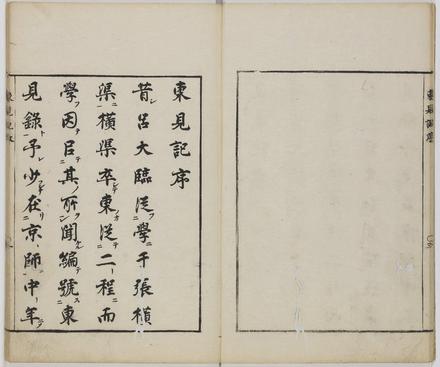 東見記序
昔呂大臨從學于張橫
渠橫渠卒東從二程而
學因臣其所聞編號東
見錄予少在京師中年
東見記序